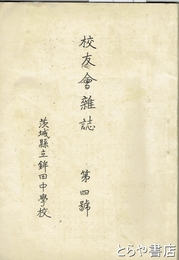 校友會雜誌
第四號
茨城縣立鉾田中學校
とらや書店